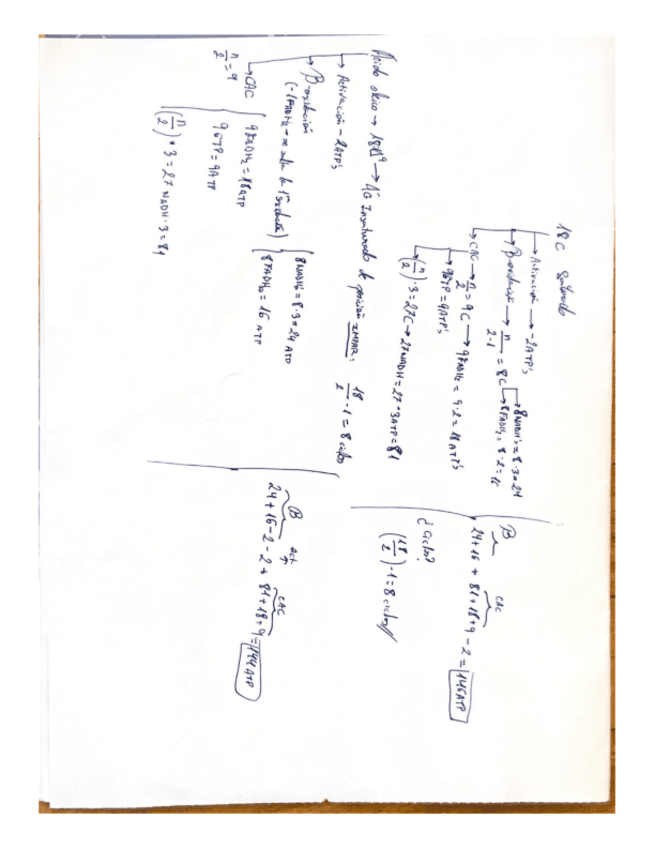 18C Saturado
↳ Activación → -2ATP's
↳ B-oxidación → n/2-1 = 8C
↳ 8NADH's = 8·3 = 24
↳ 8FADH2 = 8·2 = 16
↳ CAC → n/2 = 9C → 9FADH2 = 9·2 = 18ATP's
↳ 9GTP = 9ATP's
↳ (n/2)·3 = 27C → 27NADH = 27·3ATP = 81
B CAC
24+16 + 81+18+9 -2 = 146ATP
¿Ciclos?
(18/2)-1 = 8 ciclos//
Ácido oleico → 18Δ9 → AG Insaturado de posición IMPAR: 18/2 -1 = 8 ciclos
↳ Activación - 2ATP's
↳ B-oxidación
(-1FADH2 → se salta la 1ª reducta)
8NADH's = 8·3 = 24 ATP
8FADH2 = 16 ATP
↳ CAC
n/2 = 9
9FADH2 = 18ATP
9GTP = 9ATP
(n/2)·3 = 27 NADH·3 = 81
B Act CAC
24+16-2-2+81+18+9 = 144ATP